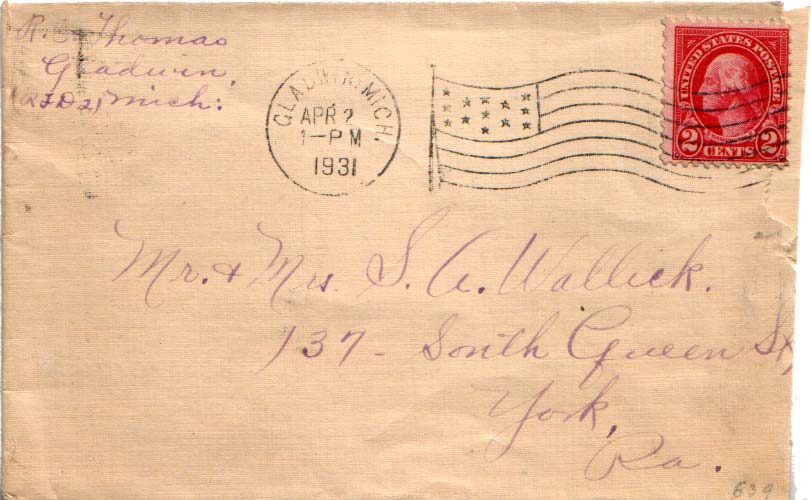 R. C. Thomas
Gladwin,
R F D 2, Mich.
GLADWIN, MICH.
APR 2
1-PM
1931
UNITED STATES POSTAGE
2 CENTS 2
Mr. & Mrs. S. A. Wallick.
137 - South Queen St,
York,
Pa.
634